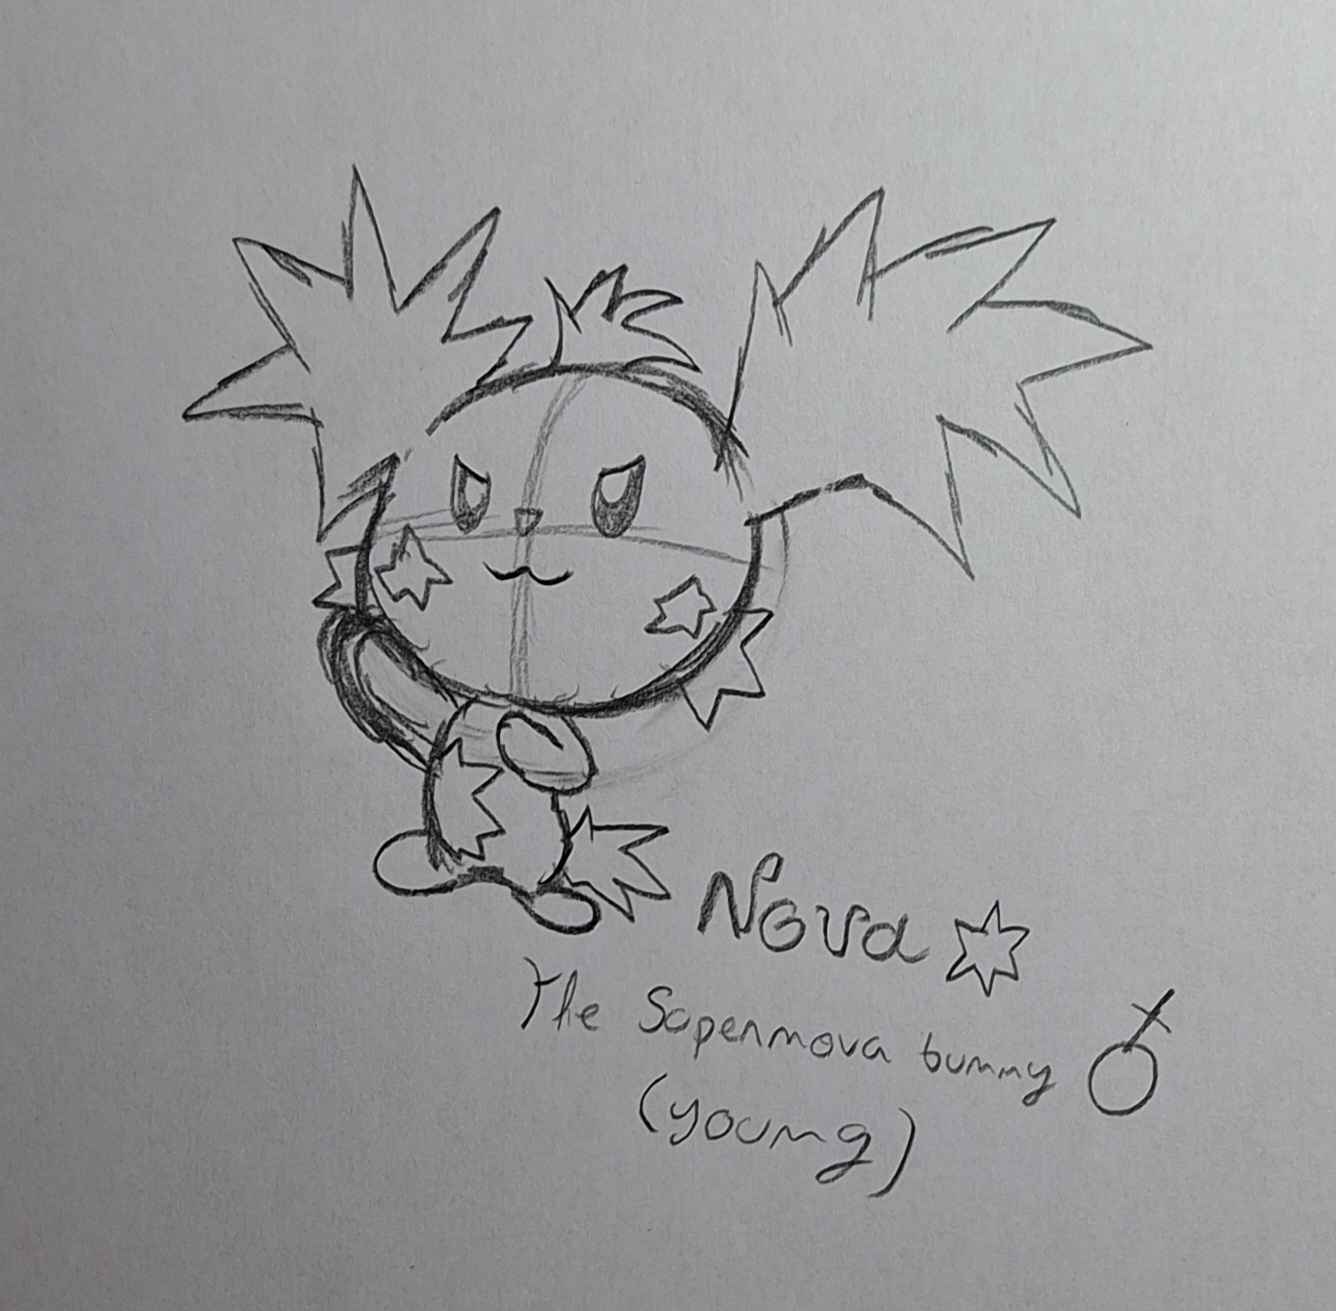 Nova
The Supernova bunny
(young)